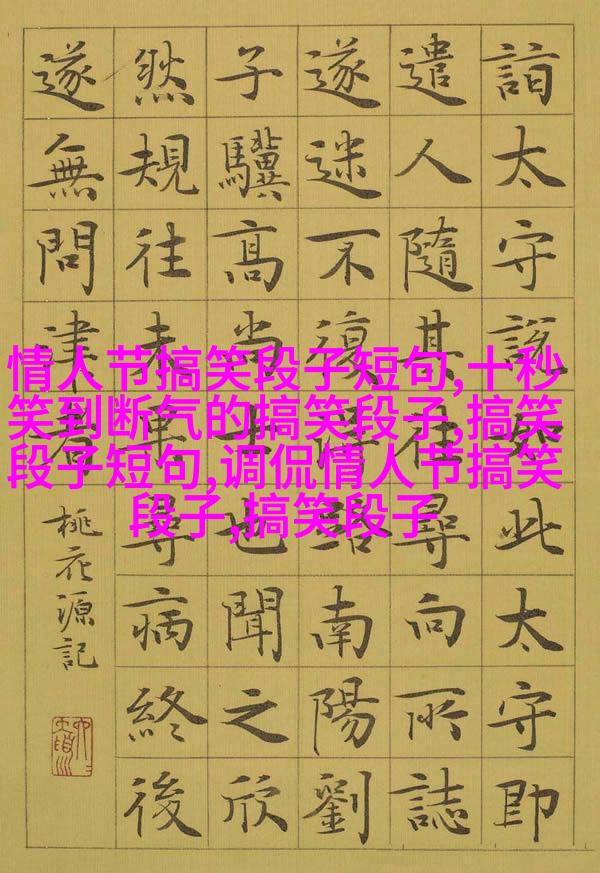 詣太守說如此太守即
遣人隨其往尋向所誌
遂迷不復得路南陽劉
子驥高尚士也聞之欣
然規往未果尋病終後
遂無問津者
桃花源記
情人节搞笑段子短句,十秒
笑到断气的搞笑段子,搞笑
段子短句,调侃情人节搞笑
段子,搞笑段子